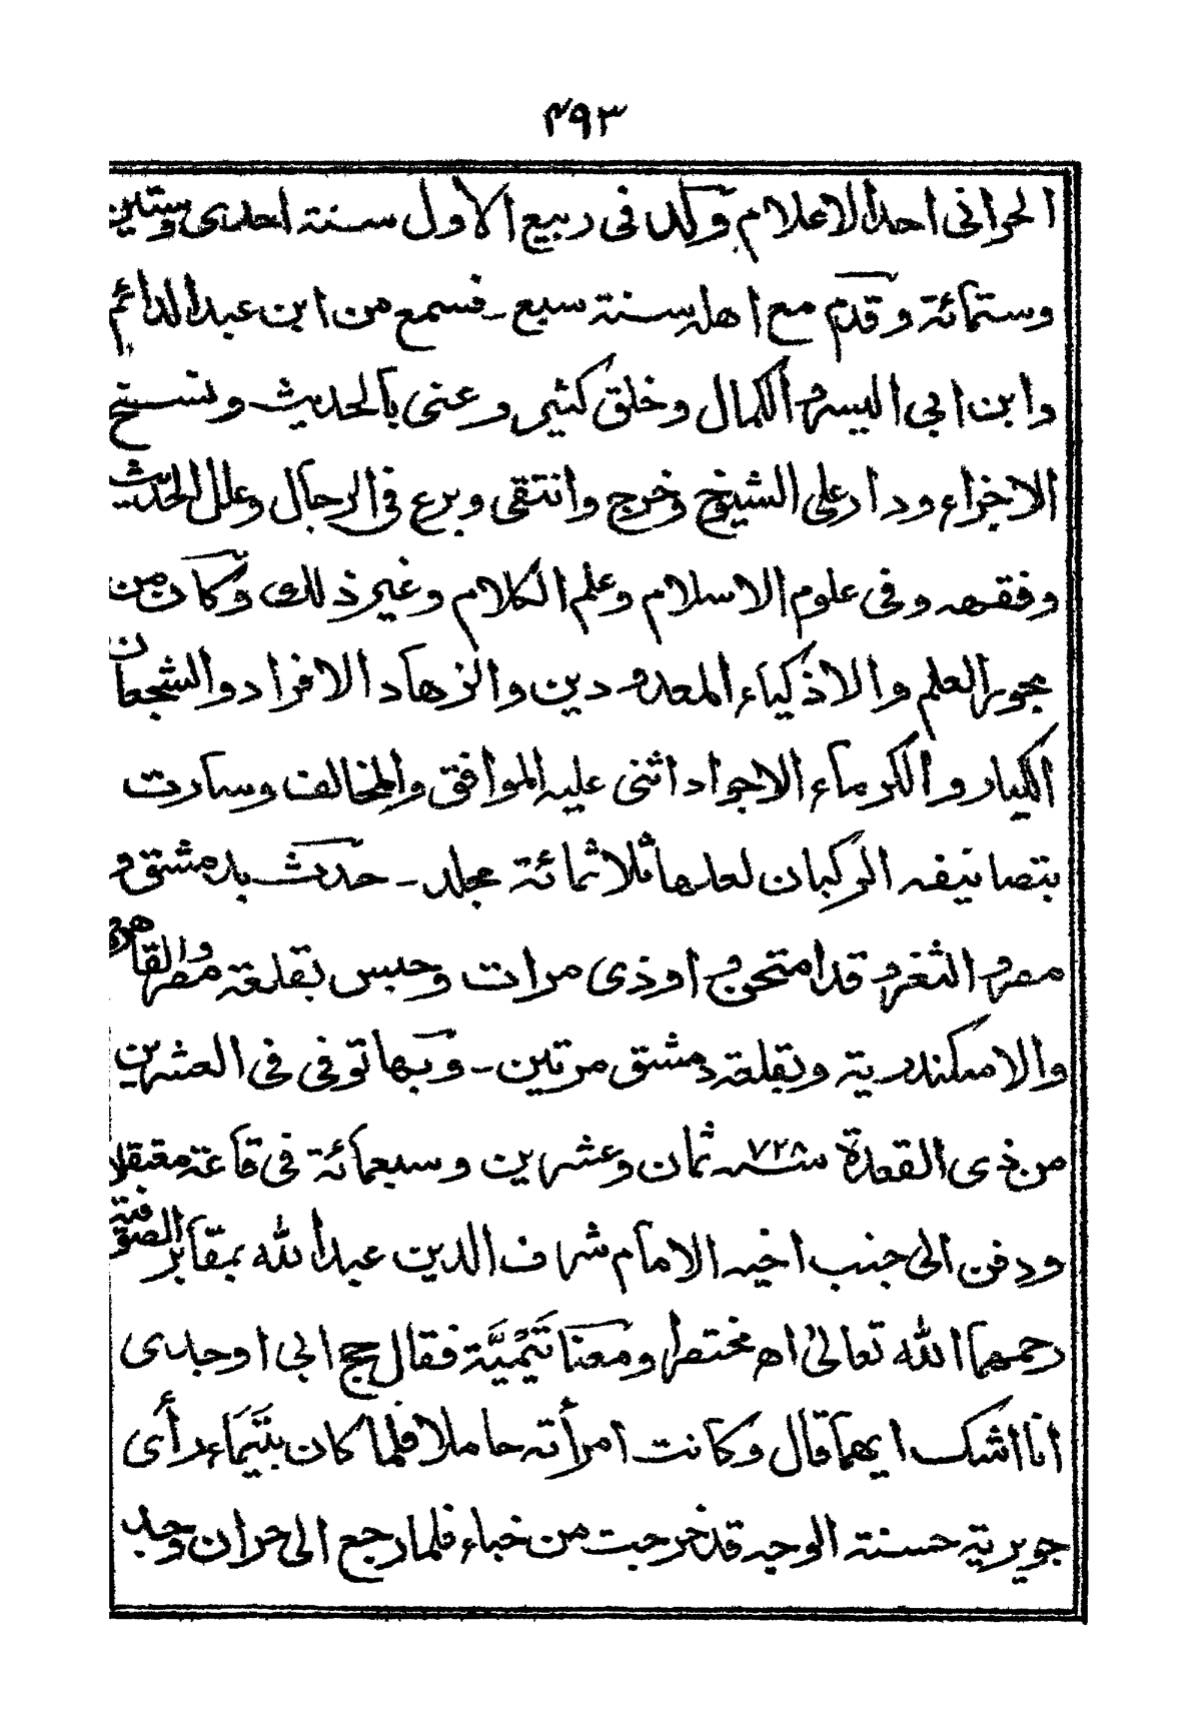 ٤٩٣
الحرانى احد الاعلام ولد فى ربيع الاول سنة احدى وستين
وستمائة وقدم مع اهله سنة سبع ـ فسمع من ابن عبد الدائم
وابن ابى اليسر والكمال وخلق كثير وعنى بالحديث ونسخ
الاجزاء ودار على الشيوخ وخرج وانتقى وبرع فى الرجال وعلل الحديث
وفقهه وفى علوم الاسلام وعلم الكلام وغير ذلك وكان من
بحور العلم والاذكياء المعدودين والزهاد الافراد والشجعان
الكبار والكرماء الاجواد اثنى عليه الموافق والمخالف وسارت
بتصانيفه الركبان لعلها ثلاثمائة مجلد ـ حدث بدمشق و
مصر والثغر وقد امتحن و اوذى مرات وحبس بقلعة مصر والقاهرة
والاسكندرية وبقلعة دمشق مرتين ـ وبها توفى فى العشرين
من ذى القعدة سنة ٧٢٨ ثمان وعشرين وسبعمائة فى قاعة معتقلا
ودفن الى جنب اخيه الامام شرف الدين عبد الله بمقابر الصوفية
رحمهما الله تعالىٰ اه مختصرا ومعنا تَيْمِيَّة فقال حج ابى او جدى
انا اشك ايهما قال وكانت امرأته حاملا فلما كان بتَيْمَاء رأى
جويرية حسنة الوجه قد خرجت من خباء فلما رجع الى حران وجد